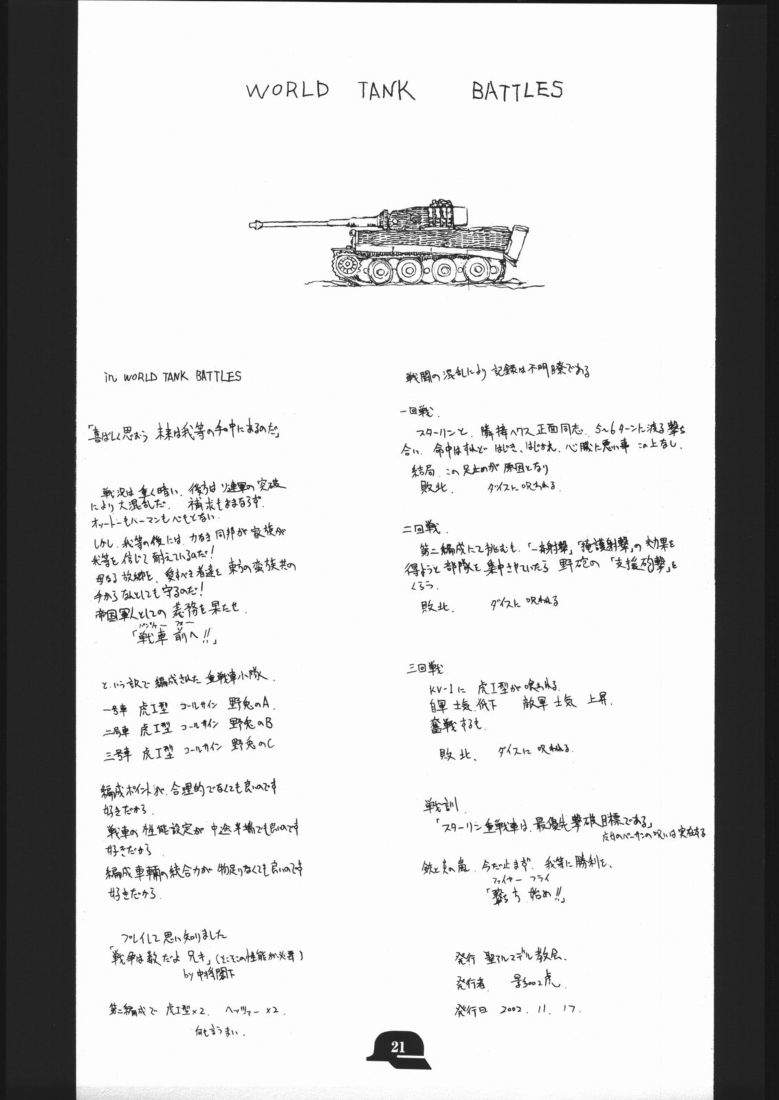 WORLD TANK BATTLES
in WORLD TANK BATTLES
「喜ばしく思おう 未来は我等の手中にあるのだ」
戦況は重く暗い。後方はソ連軍の突破
により大混乱だ。 補充もままならず
オットーもハーマンも心もとない
しかし、我等の後には力なき同邦が家族が
我等を信じて耐えているのだ!
母なる故郷と、愛すべき者達を東方の蛮族共の
手からなんとしても守るのだ!
帝国軍人としての義務を果たせ
パンツァー フォー
「戦車 前へ!!」
という訳で編成された重戦車小隊
一号車 虎I型 コールサイン 野兎のA
二号車 虎I型 コールサイン 野兎のB
三号車 虎I型 コールサイン 野兎のC
編成ポイントが、合理的でなくても良いのです
好きだから
戦車の性能設定が中途半端でも良いのです
好きだから
編成車輌の統合力が物足りなくても良いのです
好きだから
プレイして思い知りました
「戦争は数だよ 兄キ」(そこそこの性能が必要)
by 中将閣下
第二編成で 虎I型×2 ヘッツァー×2
何も言うまい。
戦闘の混乱により 記録は不明瞭である
一回戦
スターリンと、 正面同志 5~6ターンに渡る撃ち
合い。命中はすれど はじき、はじかれ、心臓に悪い事 この上なし。
結局 この足止めが原因となり
敗北。 ダイスに呪われる
二回戦
第二編成にて挑むも、「一斉射撃」「掩護射撃」の効果を
得ようと部隊を集中させていたら 野砲の「支援砲撃」を
くらう。
敗北 ダイスに呪われる
三回戦
KV-1に 虎I型が喰われる
自軍 士気 低下 敵軍 士気 上昇
奮戦するも
敗北。 ダイスに呪われる
戦訓
「スターリン重戦車は、最優先撃破目標である」
呪いは実在する
鉄と炎の嵐、今だ止まず 我等に勝利を
ファイヤー フライ
「撃ち 始め!!」
発行
発行者
発行日 2002. 11. 17.
21